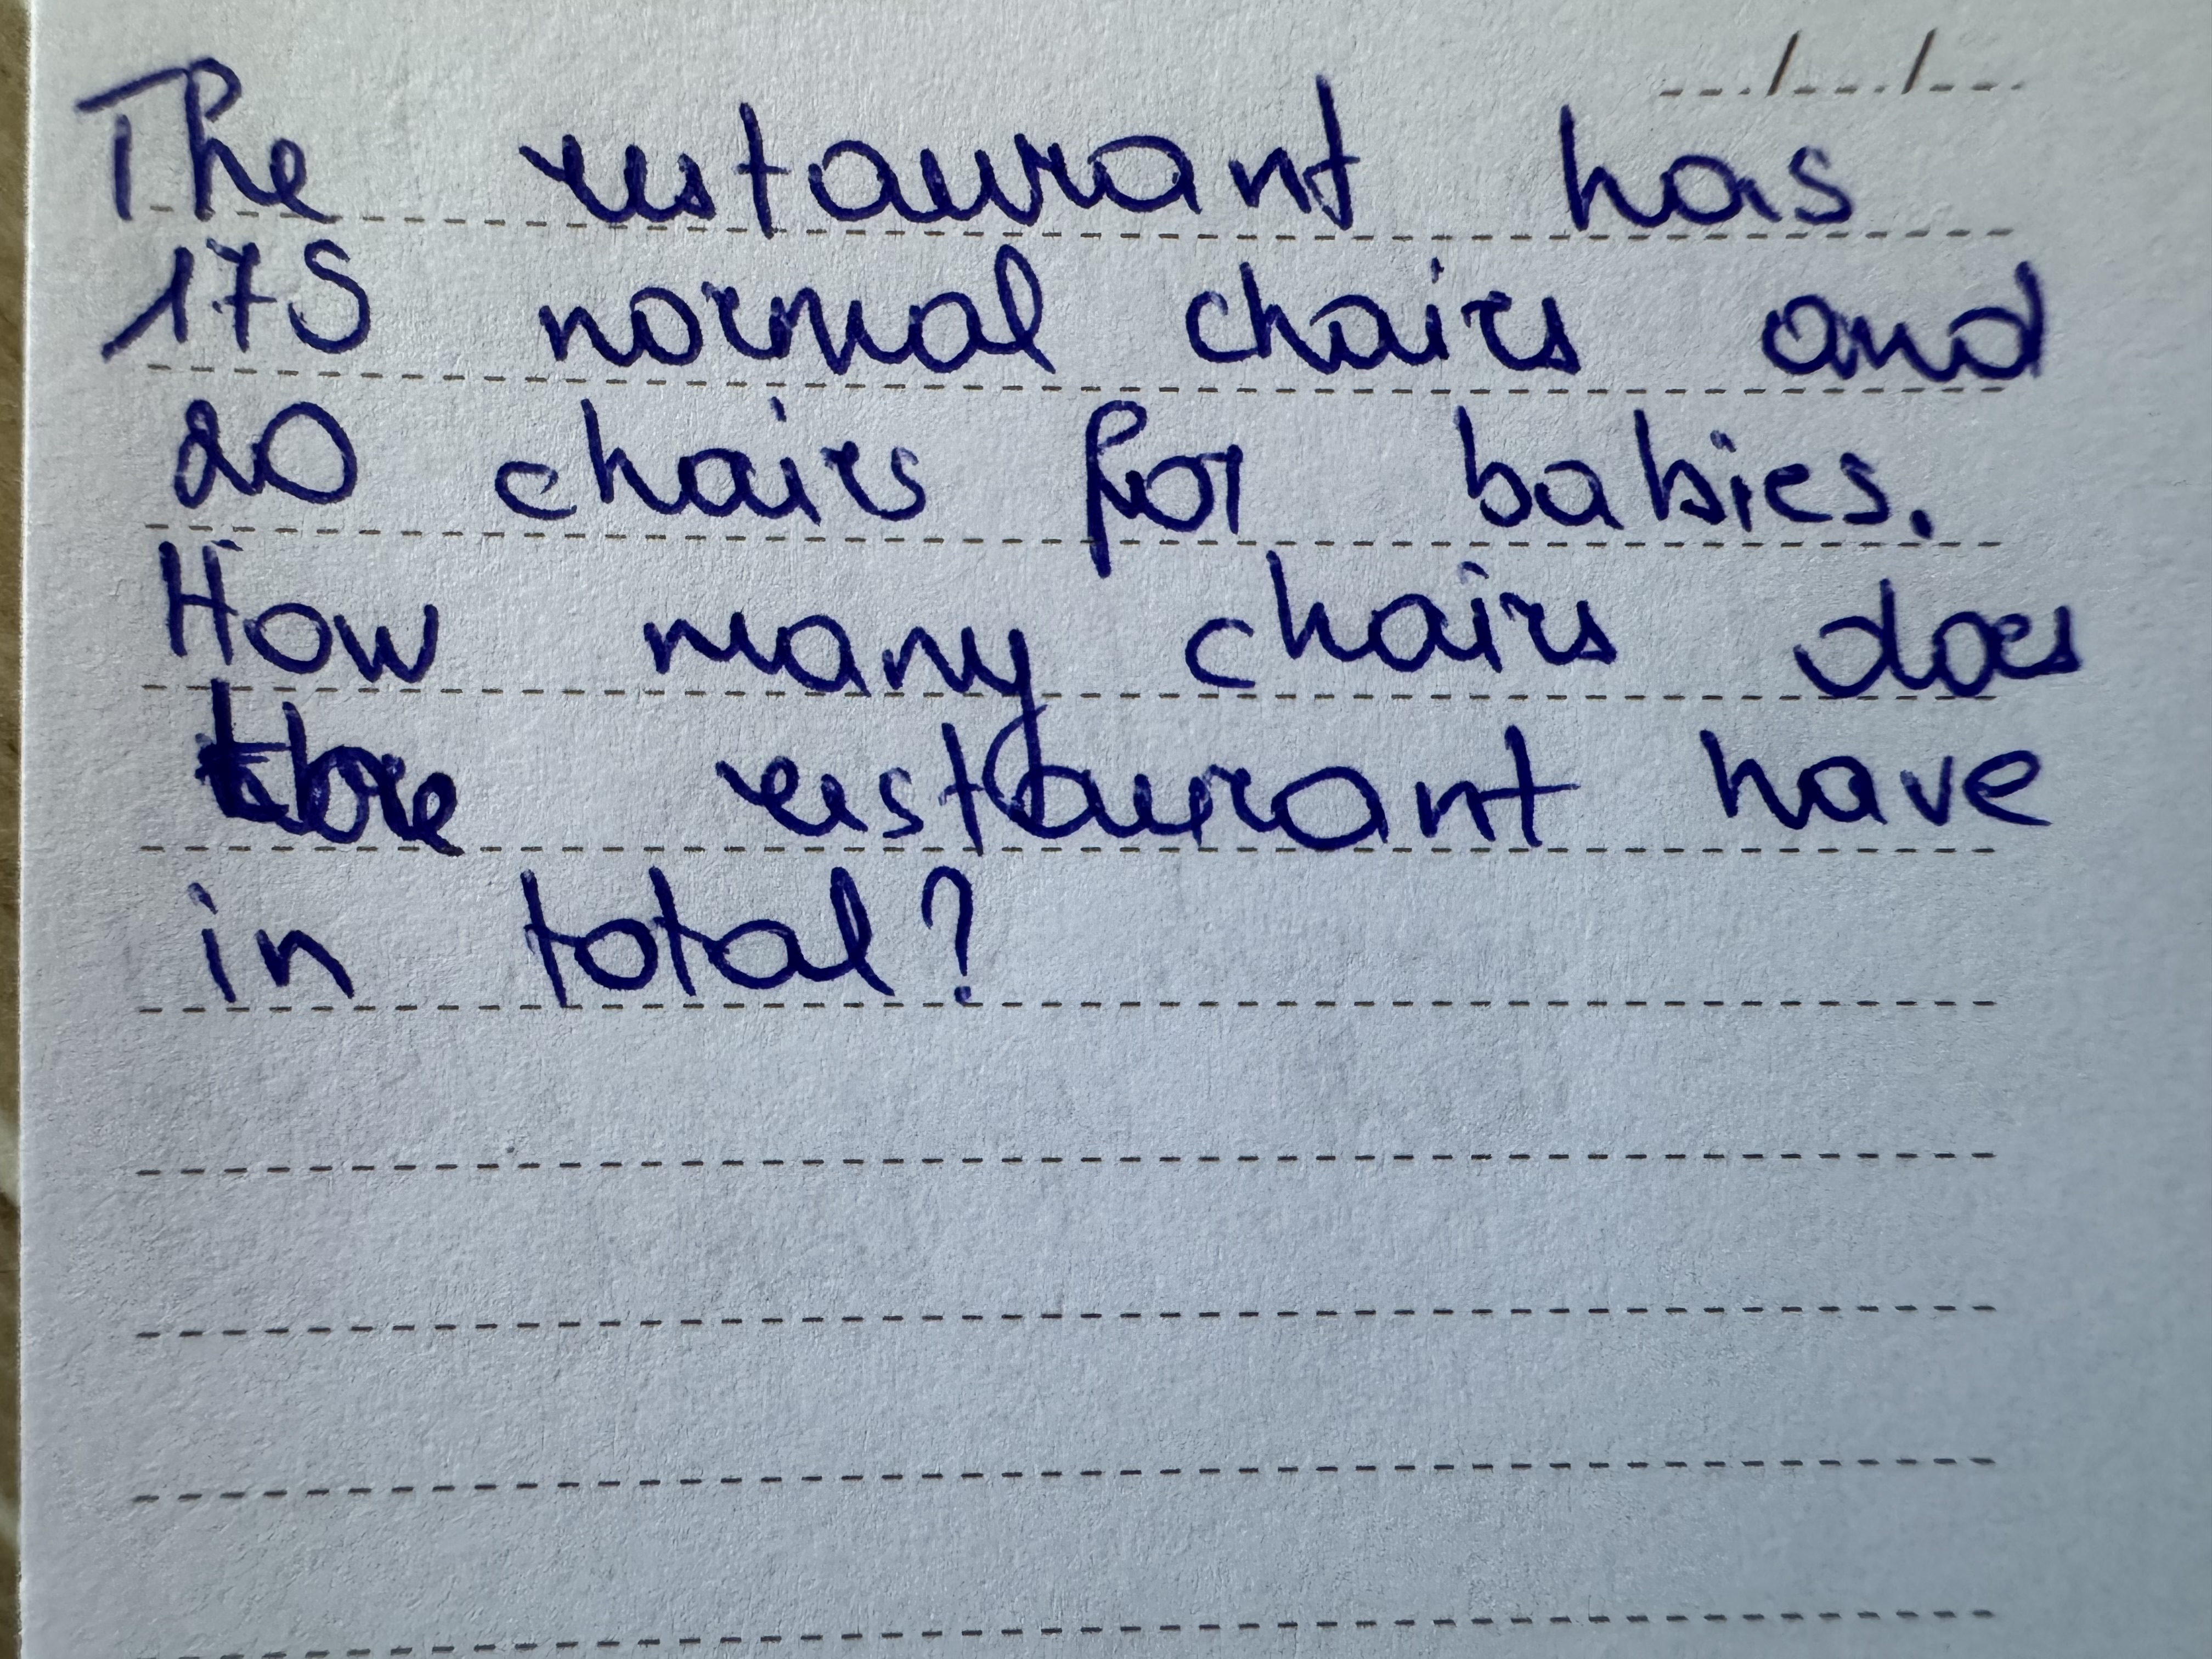 The restaurant has
175 normal chairs and
20 chairs for babies.
How many chairs does
the restaurant have
in total?